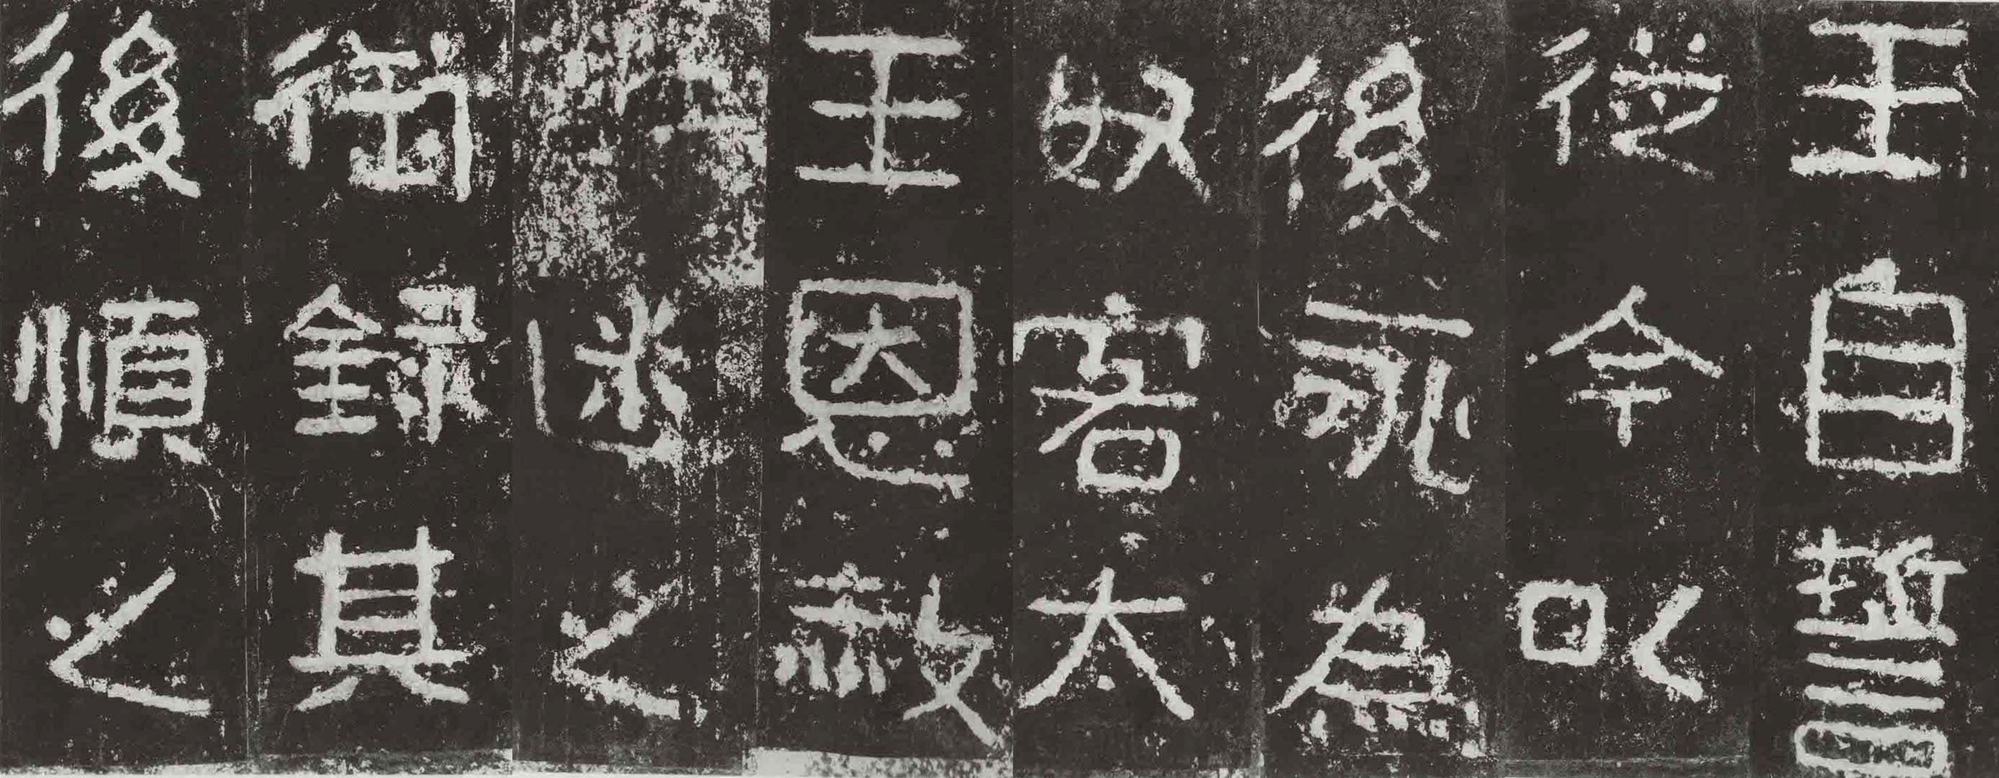 王自誓
從今以
後永為
奴客太
王恩赦
迷之
御錄其
後順之